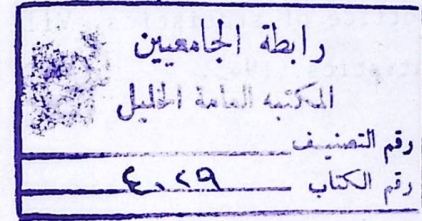 رابطة الجامعيين
المكتبه العامة الخليل
رقم التصنيف
رقم الكتاب ٤٠٢٩